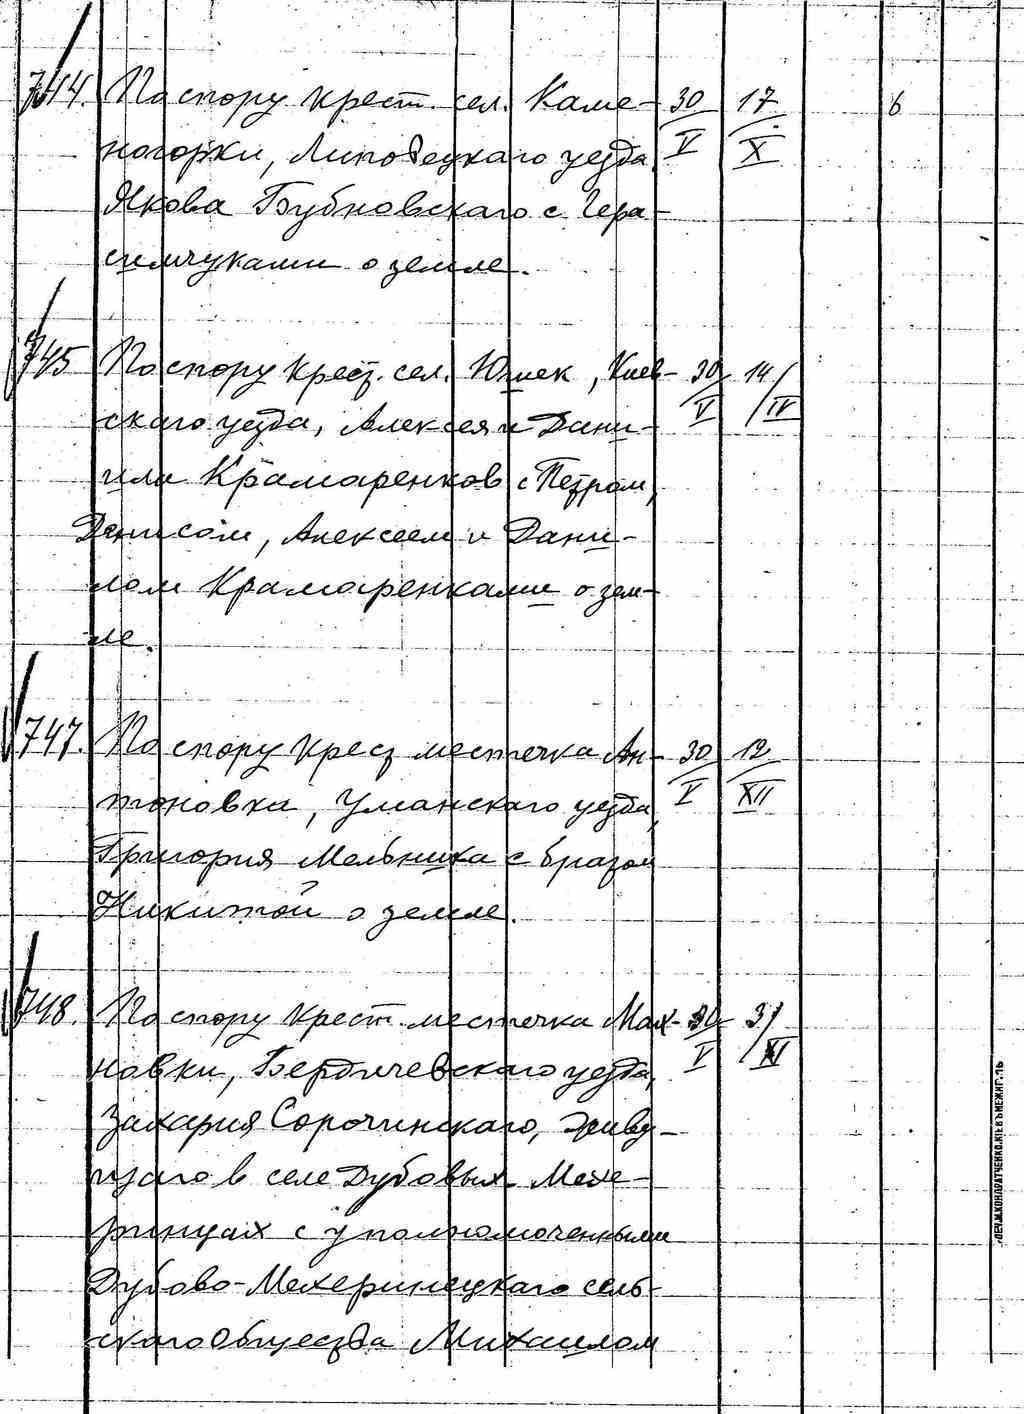 744. По спору крест. сел. Каме- 30/V 17/X 6
ногорки, Липовецкаго уезда,
Якова Бубновскаго с Гера-
симчуками о земле.
745 По спору крест. сел. Юшек, Киев- 30/V 14/IV
скаго уезда, Алексея и Дани-
ила Крамаренков с Петром,
Денисом, Алексеем и Дани-
лом Крамаренками о зем-
ле.
747. По спору крест местечка Ан- 30/V 12/XII
тоновка, Уманскаго уезда,
Григория Мельника с братом
Никитой о земле.
748. По спору крест. местечка Мах- 30/V 3/XI
новки, Бердичевскаго уезда,
Захария Сорочинскаго, живу-
щаго в селе Дубовых Меже-
ринцах с уполномоченными
Дубово-Межеринецкаго сель-
скаго Общества Михаилом
ПЕЧ. М. КОНДРАТЧЕНКО. КІЕВЪ МЕЖИГ. 7Б